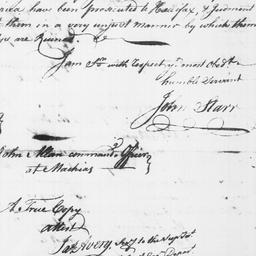 have been prosecuted to Halifax, & Judgment
them in a very unjust manner by which them
are Ruined
I am Sr. with respect yr. most Obedt.
humble Servant
John Starr
John Allan command.g Officer
at Machias
A True Copy
attest
Jas Avery Secy to the Sup.